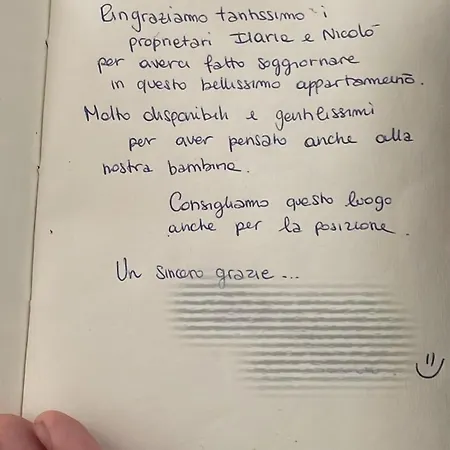 Ringraziamo tantissimo i
proprietari Ilaria e Nicolò
per averci fatto soggiornare
in questo bellissimo appartamento.
Molto disponibili e gentilissimi
per aver pensato anche alla
nostra bambina.
Consigliamo questo luogo
anche per la posizione.
Un sincero grazie...